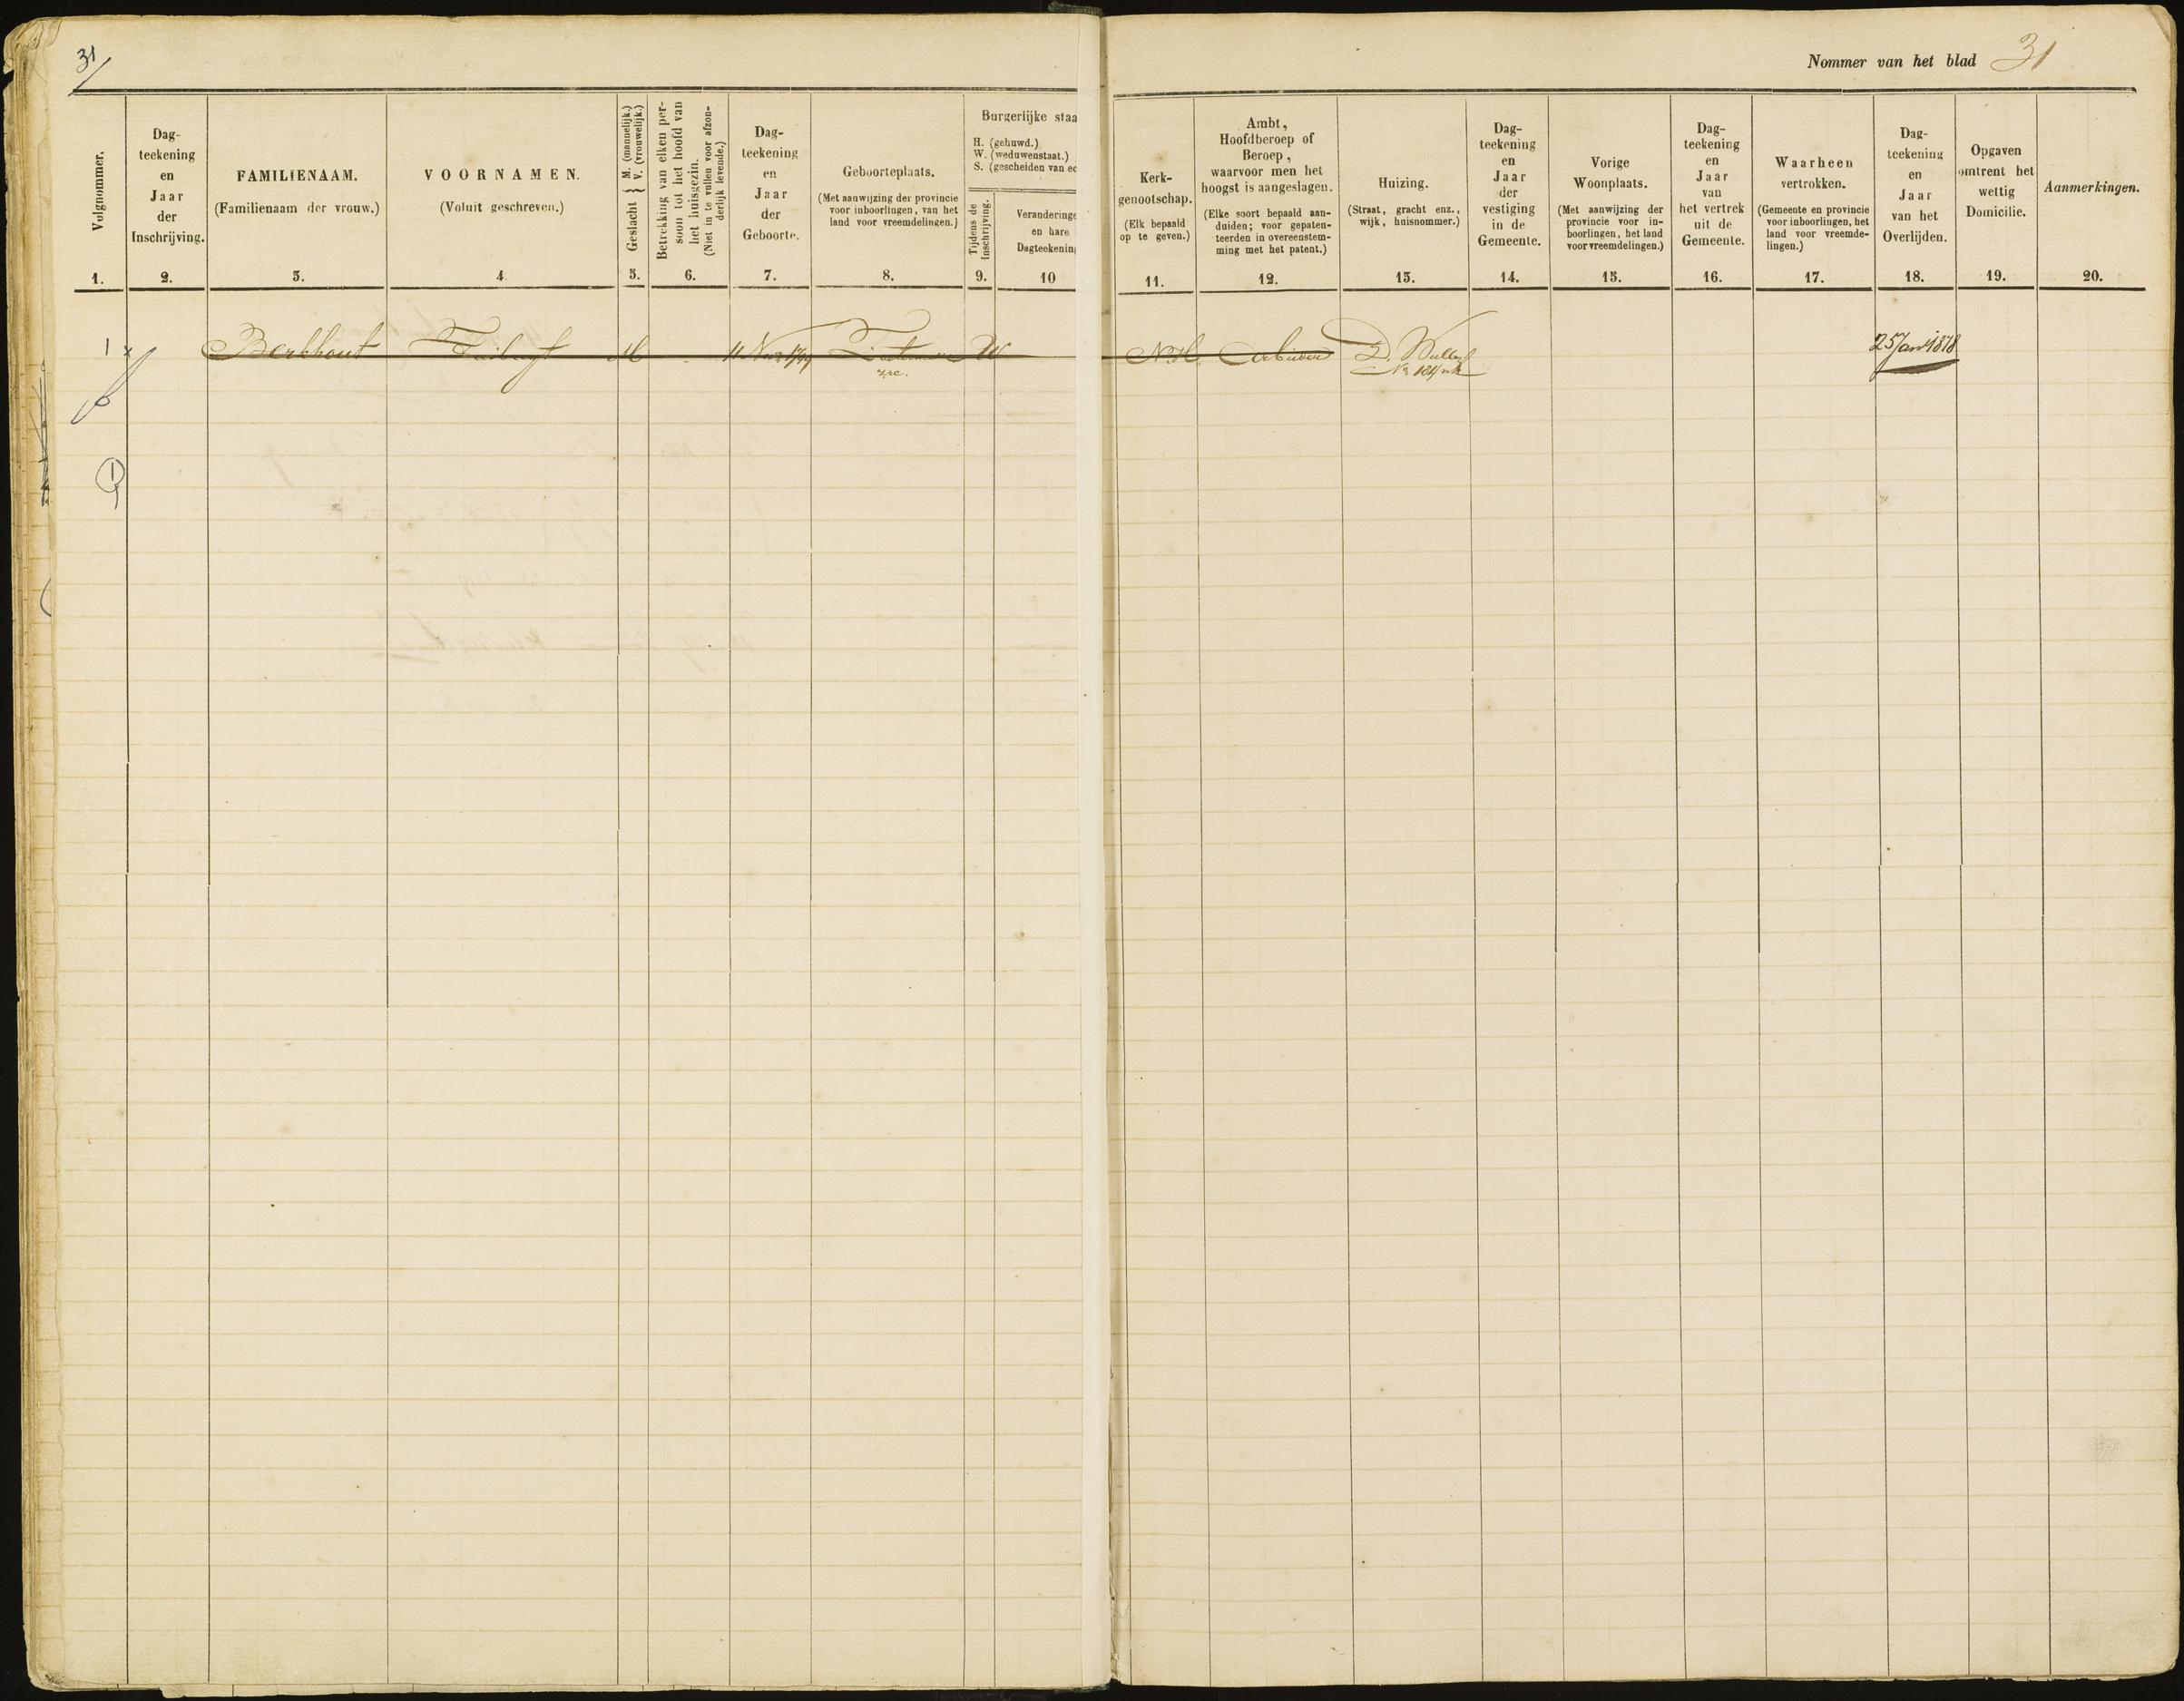 31
Nommer van het blad 31
Volgnommer.
1.
Dag-
teekening
en
Jaar
der
Inschrijving.
2.
FAMILIENAAM.
(Familienaam der vrouw.)
3.
VOORNAMEN.
(Voluit geschreven.)
4.
Geslacht { M. (mannelijk.)
V. (vrouwelijk.)
5.
Betrekking van elken per-
soon tot het hoofd van
het huisgezin.
(Niet in te vullen voor afzon-
derlijk levende.)
6.
Dag-
teekening
en
Jaar
der
Geboorte.
7.
Geboorteplaats.
(Met aanwijzing der provincie
voor inboorlingen, van het
land voor vreemdelingen.)
8.
Burgerlijke staa
H. (gehuwd.)
W. (weduwenstaat.)
S. (gescheiden van ec
Tijdens de
Inschrijving.
9.
Veranderinge
en hare
Dagteekening
10
Kerk-
genootschap.
(Elk bepaald
op te geven.)
11.
Ambt,
Hoofdberoep of
Beroep,
waarvoor men het
hoogst is aangeslagen.
(Elke soort bepaald aan-
duiden; voor gepaten-
teerden in overeenstem-
ming met het patent.)
12.
Huizing.
(Straat, gracht enz.,
wijk, huisnommer.)
13.
Dag-
teekening
en
Jaar
der
vestiging
in de
Gemeente.
14.
Vorige
Woonplaats.
(Met aanwijzing der
provincie voor in-
boorlingen, het land
voor vreemdelingen.)
15.
Dag-
teekening
en
Jaar
van
het vertrek
uit de
Gemeente.
16.
Waarheen
vertrokken.
(Gemeente en provincie
voor inboorlingen, het
land voor vreemde-
lingen.)
17.
Dag-
teekening
en
Jaar
van het
Overlijden.
18.
Opgaven
omtrent het
wettig
Domicilie.
19.
Aanmerkingen.
20.
1 Berkhout M 11 Nov W N.H. 25 Jan 1878
1